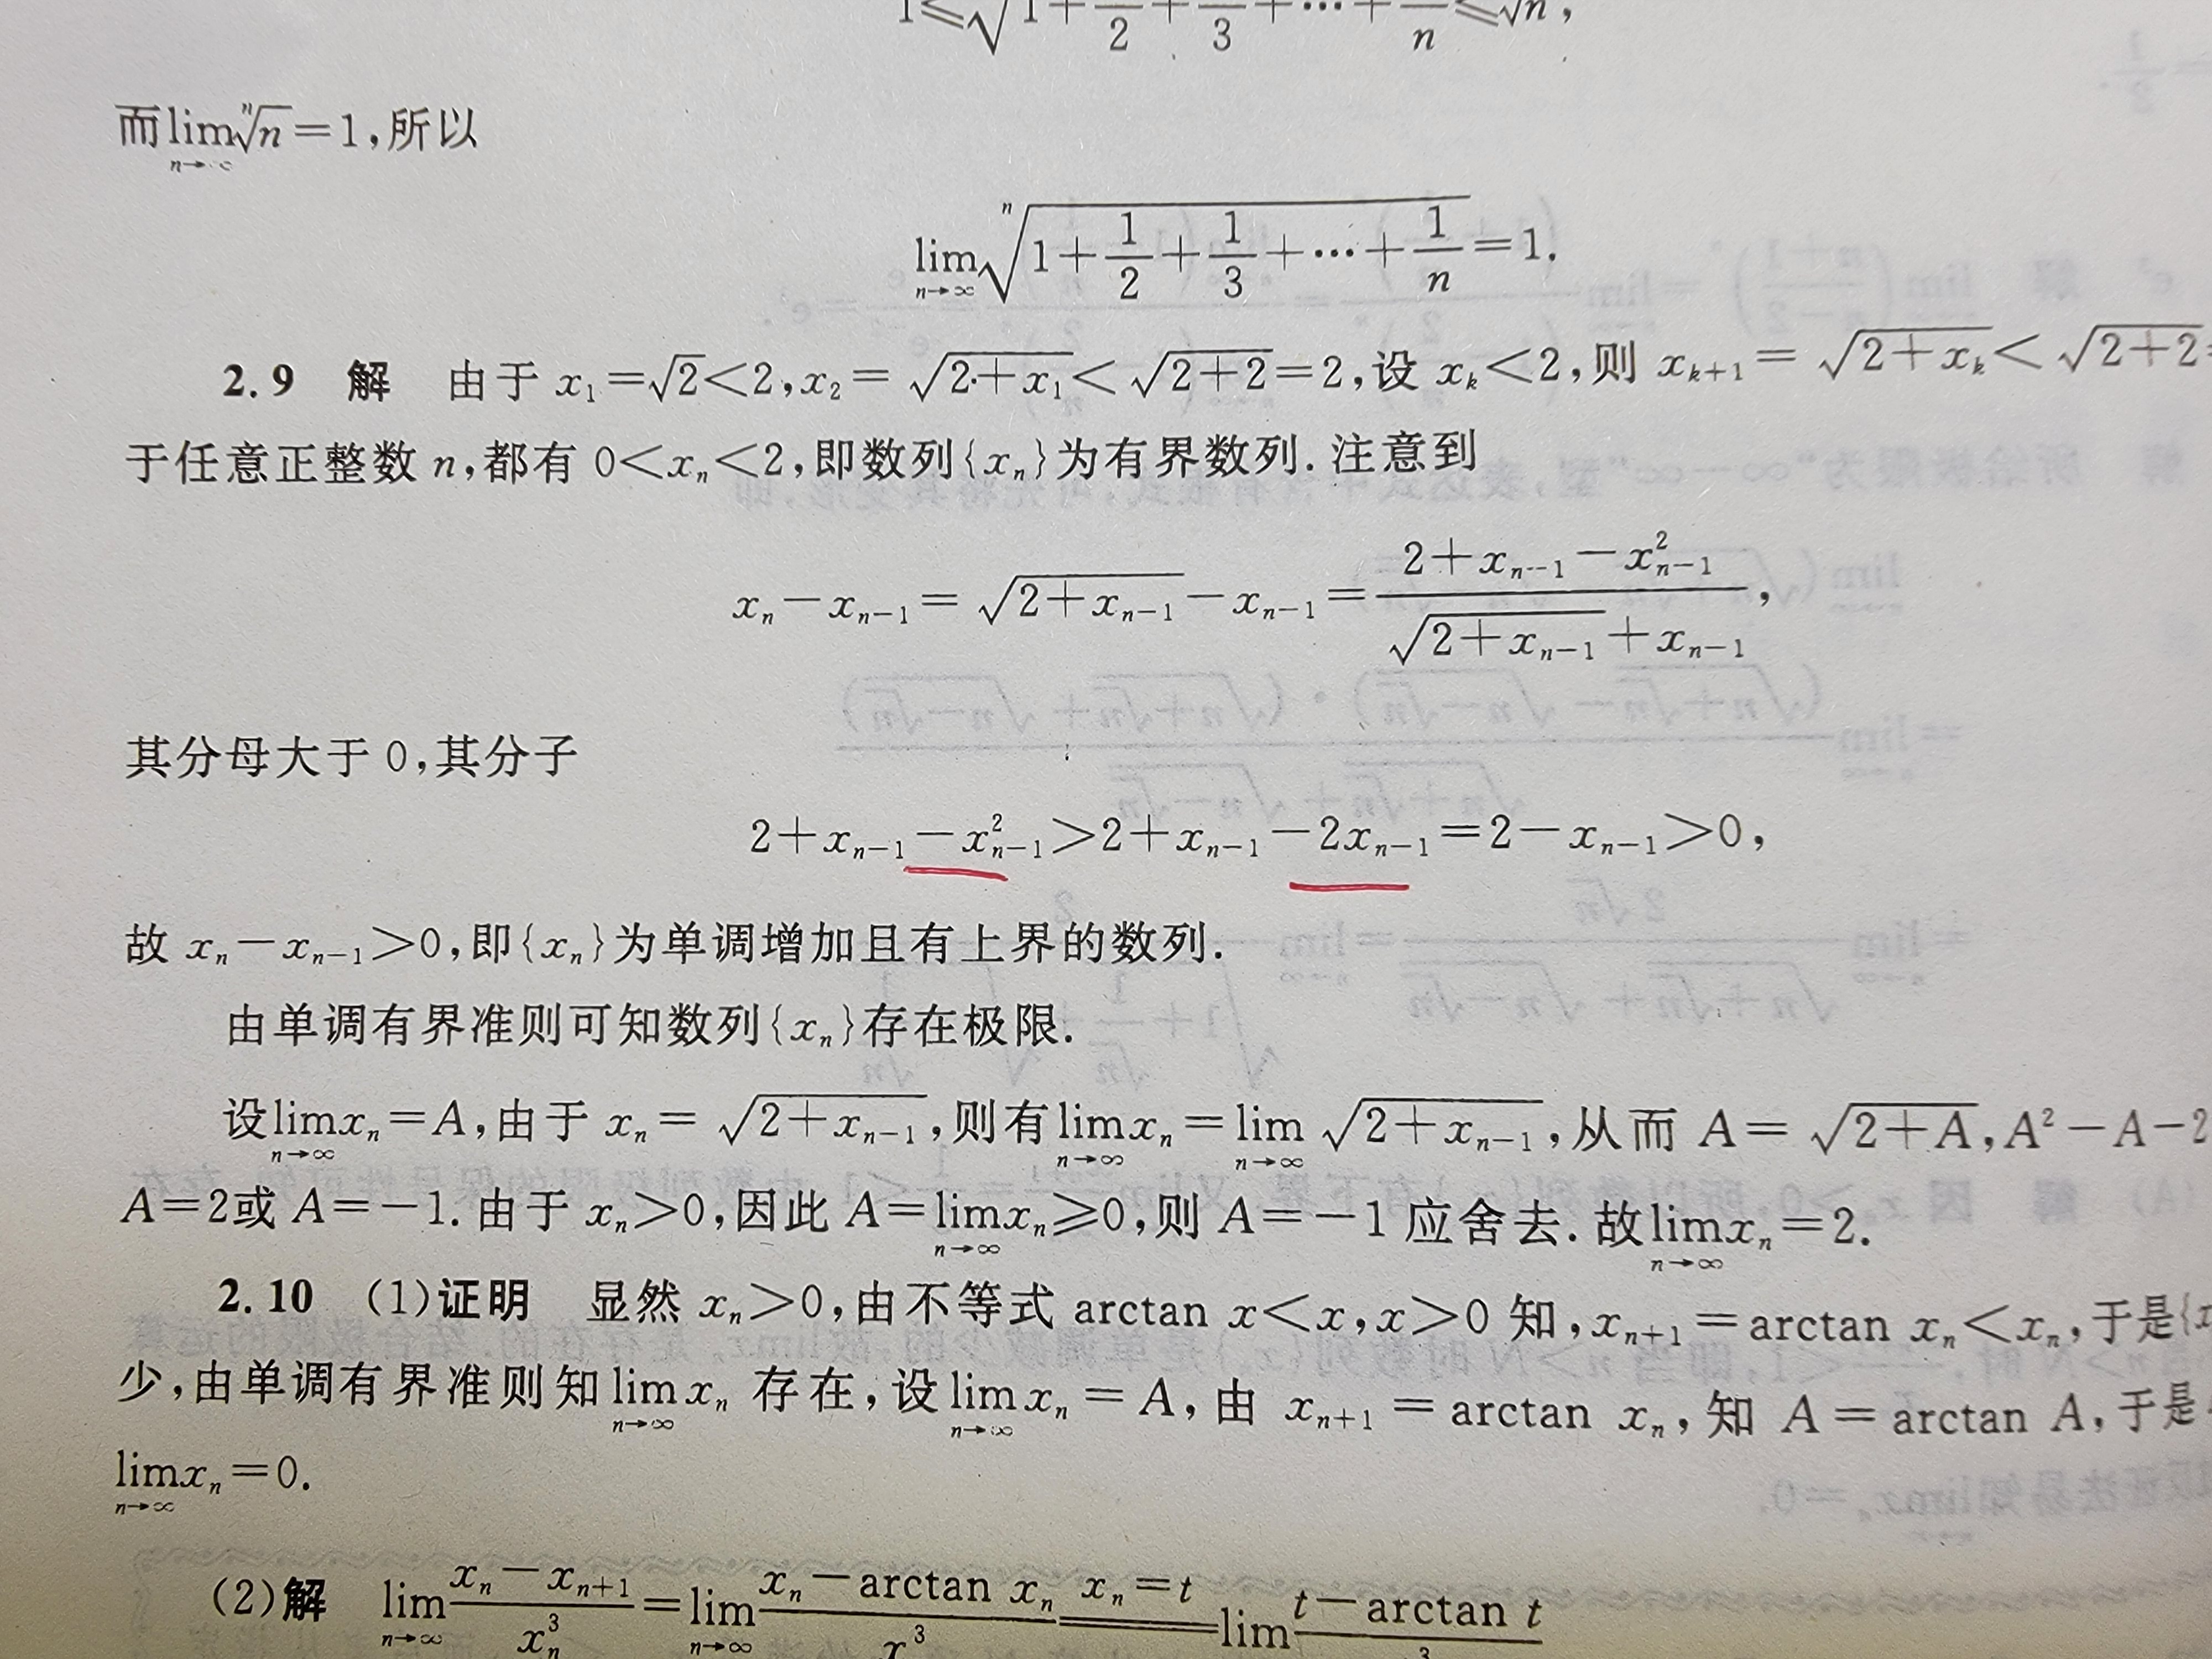 1≤√1+1/2+1/3+⋯+1/n≤√n,
而lim_{n→∞} ⁿ√n=1,所以
lim_{n→∞} ⁿ√(1+1/2+1/3+⋯+1/n)=1.
2.9 解 由于 x₁=√2<2,x₂=√(2+x₁)<√(2+2)=2,设 x_k<2,则 x_{k+1}=√(2+x_k)<√(2+2)=
于任意正整数 n,都有 0<x_n<2,即数列{x_n}为有界数列.注意到
x_n-x_{n-1}=√(2+x_{n-1})-x_{n-1}=(2+x_{n-1}-x²_{n-1})/(√(2+x_{n-1})+x_{n-1}),
其分母大于 0,其分子
2+x_{n-1}-x²_{n-1}>2+x_{n-1}-2x_{n-1}=2-x_{n-1}>0,
故 x_n-x_{n-1}>0,即{x_n}为单调增加且有上界的数列.
由单调有界准则可知数列{x_n}存在极限.
设lim_{n→∞} x_n=A,由于 x_n=√(2+x_{n-1}),则有lim_{n→∞} x_n=lim_{n→∞} √(2+x_{n-1}),从而 A=√(2+A),A²-A-2
A=2或 A=-1.由于 x_n>0,因此 A=lim_{n→∞} x_n≥0,则 A=-1 应舍去.故lim_{n→∞} x_n=2.
2.10 (1)证明 显然 x_n>0,由不等式 arctan x<x,x>0 知,x_{n+1}=arctan x_n<x_n,于是{x
少,由单调有界准则知lim_{n→∞} x_n 存在,设lim_{n→∞} x_n=A,由 x_{n+1}=arctan x_n,知 A=arctan A,于是
lim_{n→∞} x_n=0.
(2)解 lim_{n→∞} (x_n-x_{n+1})/x_n³=lim_{n→∞} (x_n-arctan x_n)/x³ ==(x_n=t)== lim (t-arctan t)/³